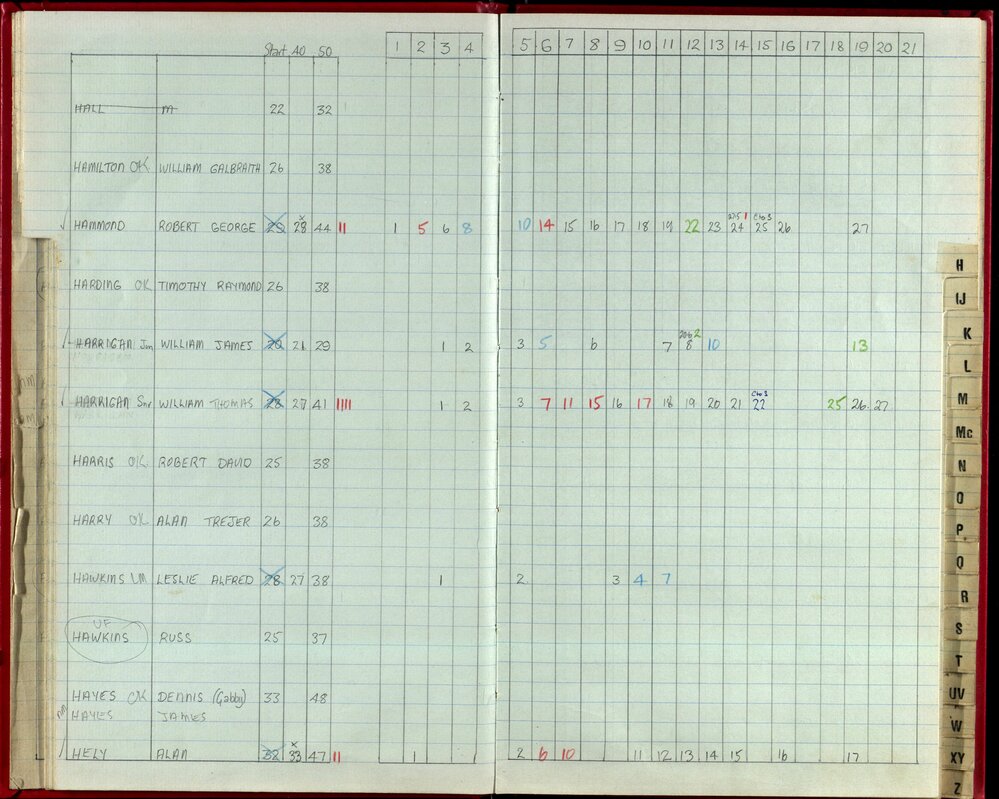 Start 40 50 1 2 3 4 5 6 7 8 9 10 11 12 13 14 15 16 17 18 19 20 21
HALL M 22 32
HAMILTON OK WILLIAM GALBRAITH 26 38
HAMMOND ROBERT GEORGE 25 x 28 44 11 1 5 6 8 10 14 15 16 17 18 19 22 23 24 25 26 27
HARDING OK TIMOTHY RAYMOND 26 38
HARRIGAN Jnr WILLIAM JAMES 20 21 29 1 2 3 5 6 7 8 10 13
HARRIGAN Snr WILLIAM THOMAS 28 27 41 1111 1 2 3 7 11 15 16 17 18 19 20 21 22 25 26 27
HARRIS OK ROBERT DAVID 25 38
HARRY OK ALAN TREJER 26 38
HAWKINS LM LESLIE ALFRED 28 27 38 1 2 3 4 7
UF
HAWKINS RUSS 25 37
HAYES OK DENNIS (Gabby) 33 48
HAYES JAMES
HELY ALAN 32 x 33 47 11 1 2 6 10 11 12 13 14 15 16 17
H
IJ
K
L
M
Mc
N
O
P
Q
R
S
T
UV
W
XY
Z